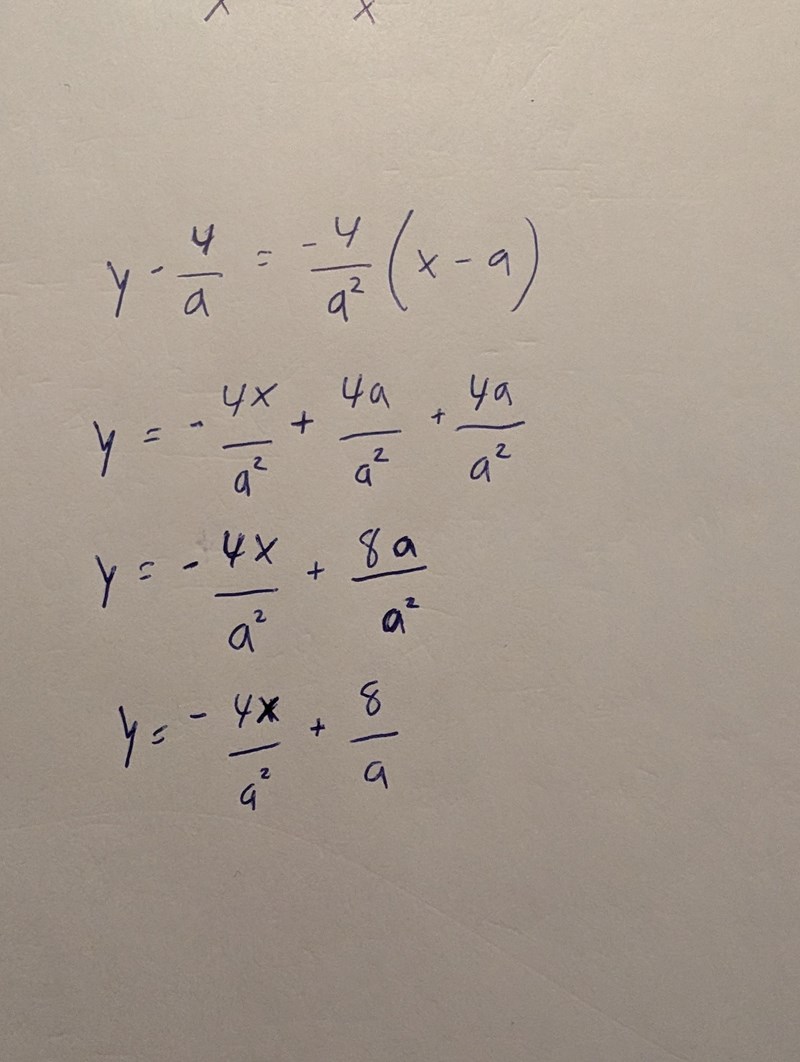 x x
y - 4/a = -4/a² (x - a)
y = - 4x/a² + 4a/a² + 4a/a²
y = - 4x/a² + 8a/a²
y = - 4x/a² + 8/a